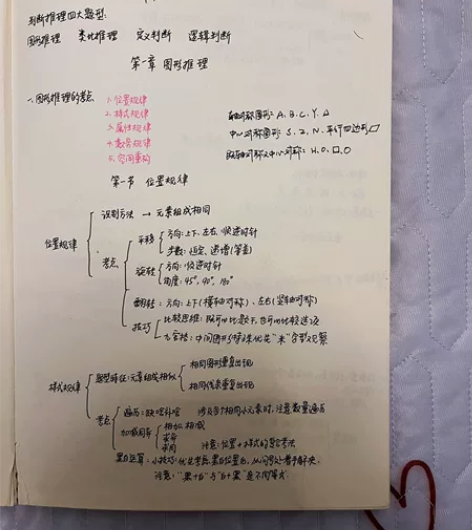 判断推理四大题型:
图形推理 类比推理 定义判断 逻辑判断
第一章 图形推理
一、图形推理的考点
1.位置规律
2.样式规律
3.属性规律
4.数量规律
5.空间重构
轴对称图形: A、B、C、Y、△
中心对称图形: S、Z、N、平行四边形
既轴对称又中心对称: H、O、□、O
第一节 位置规律
位置规律
识别方法 → 元素组成相同
考点
平移
方向:上下、左右、顺逆时针
步数:恒定、递增(等差)
旋转
方向:顺逆时针
角度:45°、90°、180°
翻转: 方向:上下(横轴对称)、左右(竖轴对称)
技巧
比较思维: 既可以比题干,也可以比较选项
九宫格: 中间图形特殊优先"米"字型观察
样式规律
题型特征:元素组成相似
相同图形重复出现
相同线条重复出现
考点
遍历: 缺啥补啥
多个相同小元素时,注意数量遍历
加减同异
相加、相减
求异
求同
注意:位置+样式的复合考法
黑白运算: 小技巧:优先考虑黑白位置后,从问号处着手解决,
注意:"黑+白"与"白+黑"是不同等式